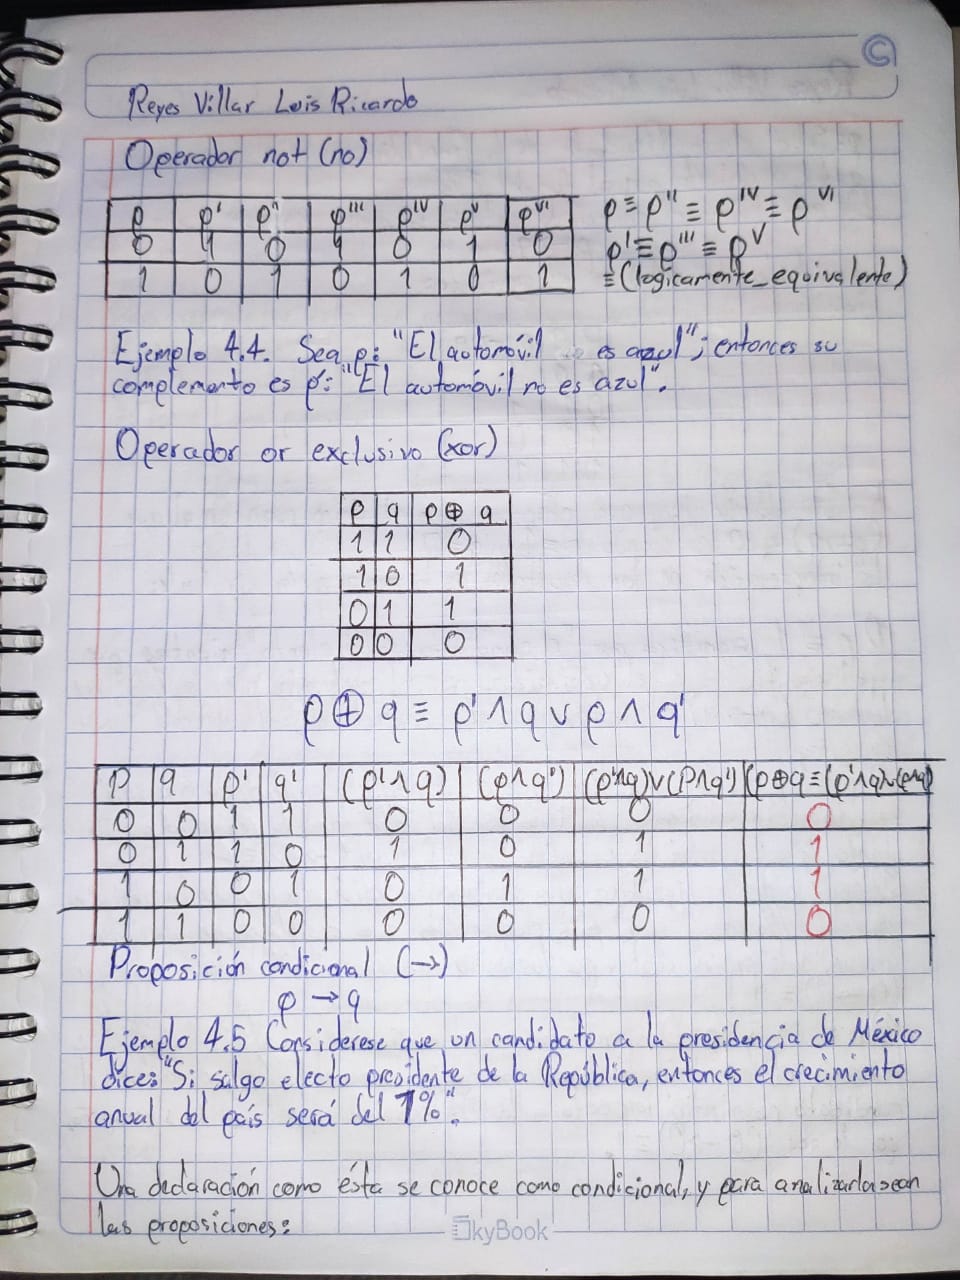 C
Reyes Villar Luis Ricardo
Operador not (no)
p p' p'' p''' p^IV p^V p^VI
0 1 0 1 0 1 0
1 0 1 0 1 0 1
p ≡ p'' ≡ p^IV ≡ p^VI
p' ≡ p''' ≡ p^V
≡ (logicamente_equivalente)
Ejemplo 4.4. Sea p: "El automóvil es azul"; entonces su
complemento es p': "El automóvil no es azul".
Operador or exclusivo (xor)
p q p ⊕ q
1 1 0
1 0 1
0 1 1
0 0 0
p ⊕ q ≡ p' ∧ q ∨ p ∧ q'
p q p' q' (p' ∧ q) (p ∧ q') (p' ∧ q) ∨ (p ∧ q') (p ⊕ q ≡ (p' ∧ q) ∨ (p ∧ q')
0 0 1 1 0 0 0 0
0 1 1 0 1 0 1 1
1 0 0 1 0 1 1 1
1 1 0 0 0 0 0 0
Proposición condicional (→)
p → q
Ejemplo 4.5 Considerese que un candidato a la presidencia de México
dice: "Si salgo electo presidente de la República, entonces el crecimiento
anual del país será del 7%".
Una declaración como ésta se conoce como condicional, y para analizarla sean
las proposiciones:
SkyBook